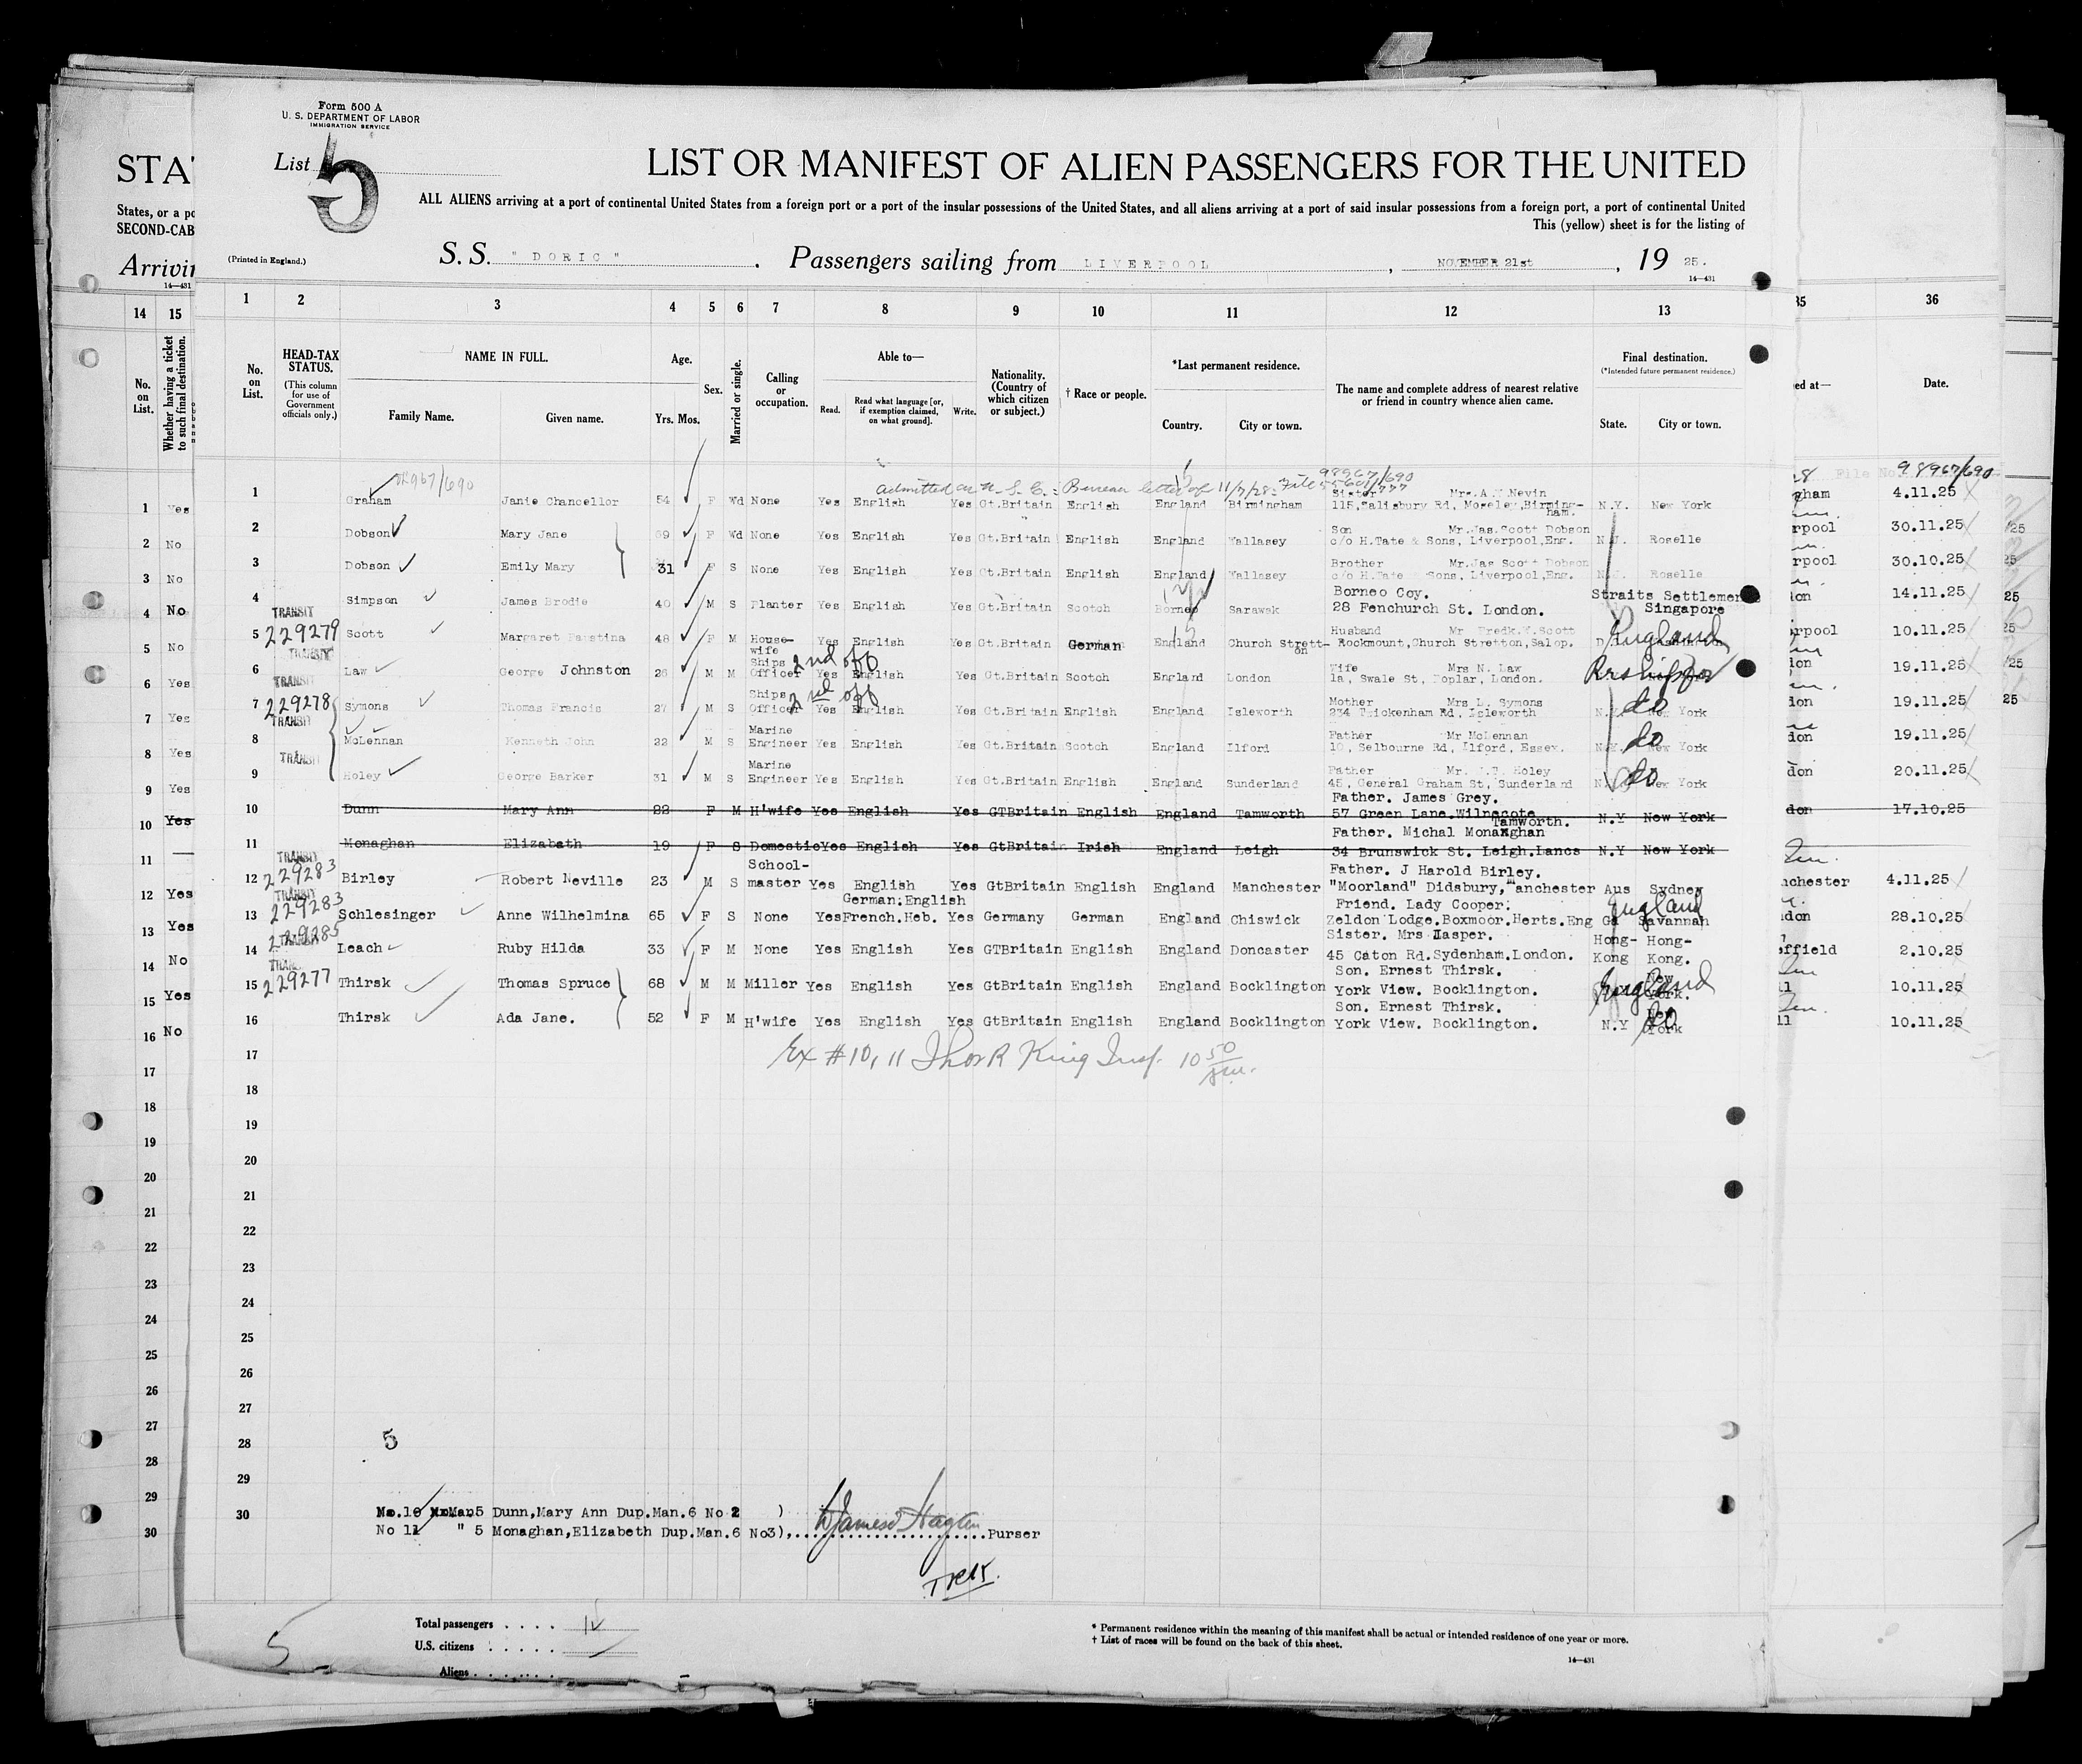 Form 500 A
U. S. DEPARTMENT OF LABOR
IMMIGRATION SERVICE
List 5
LIST OR MANIFEST OF ALIEN PASSENGERS FOR THE UNITED
ALL ALIENS arriving at a port of continental United States from a foreign port or a port of the insular possessions of the United States, and all aliens arriving at a port of said insular possessions from a foreign port, a port of continental United
This (yellow) sheet is for the listing of
(Printed in England.)
S. S. "DORIC". Passengers sailing from LIVERPOOL, NOVEMBER 21st, 19 25.
14—431
STA
States, or a po
SECOND-CAB
Arrivin
14—431
14 15
No. on List.
Whether having a ticket to such final destination.
1 2 3 4 5 6 7 8 9 10 11 12 13
35 36
No. on List.
HEAD-TAX STATUS.
(This column for use of Government officials only.)
NAME IN FULL.
Family Name. Given name.
Age.
Yrs. Mos.
Sex.
Married or single.
Calling or occupation.
Able to—
Read. Read what language [or, if exemption claimed, on what ground]. Write.
Nationality. (Country of which citizen or subject.)
† Race or people.
*Last permanent residence.
Country. City or town.
The name and complete address of nearest relative or friend in country whence alien came.
Final destination.
(*Intended future permanent residence.)
State. City or town.
ed at— Date.
98967/690
Admitted as U.S.C.: Bureau letter of 11/7/28: File 55601/777
98967/690
File No. 98967/690
1 Graham Janie Chancellor 54 F Wd None Yes English Yes Gt.Britain English England Birmingham Sister Mrs. A. Nevin 115, Salisbury Rd, Moseley, Birmingham N.Y. New York
2 Dobson Mary Jane 69 F Wd None Yes English Yes Gt.Britain English England Wallasey Son Mr. Jas. Scott Dobson c/o H.Tate & Sons, Liverpool, Eng. N.J. Roselle
3 Dobson Emily Mary 31 F S None Yes English Yes Gt.Britain English England Wallasey Brother Mr. Jas Scott Dobson c/o H.Tate Sons, Liverpool, Eng. N.J. Roselle
4 Simpson James Brodie 40 M S Planter Yes English Yes Gt.Britain Scotch Borneo Sarawak Borneo Coy. 28 Fenchurch St. London. Straits Settlemen Singapore
TRANSIT 229279
5 Scott Margaret Faustina 48 F M House-wife Yes English Yes Gt.Britain German England Church Stretton Husband Mr Fredk. Scott Rockmount, Church Stretton, Salop. England
TRANSIT
6 Law George Johnston 26 M M Ships Officer 2nd off Yes English Yes Gt.Britain Scotch England London Wife Mrs N. Law 1a, Swale St, Poplar, London.
TRANSIT 229278
7 Symons Thomas Francis 27 M S Ships Officer 2nd off Yes English Yes Gt.Britain English England Isleworth Mother Mrs L. Symons 234 Twickenham Rd, Isleworth N.Y. New York do
TRANSIT
8 McLennan Kenneth John 22 M S Marine Engineer Yes English Yes Gt.Britain Scotch England Ilford Father Mr McLennan 10, Selbourne Rd, Ilford, Essex. N.Y. New York do
TRANSIT
9 Holey George Barker 31 M S Marine Engineer Yes English Yes Gt.Britain English England Sunderland Father Mr. Holey 45, General Graham St, Sunderland N.Y. New York do
10 Dunn Mary Ann 22 F M H'wife Yes English Yes GTBritain English England Tamworth Father. James Grey. 57 Green Lane.Wilnecote Tamworth. N.Y New York
11 Monaghan Elizabeth 19 F S Domestic Yes English Yes GtBritain Irish England Leigh Father. Michal Monaghan 34 Brunswick St. Leigh.Lancs N.Y New York
TRANSIT 229283
12 Birley Robert Neville 23 M S School-master Yes English Yes GtBritain English England Manchester Father. J Harold Birley. "Moorland" Didsbury, Manchester Aus Sydney
TRANSIT 229283
13 Schlesinger Anne Wilhelmina 65 F S None Yes German:English French.Heb. Yes Germany German England Chiswick Friend. Lady Cooper. Zeldon Lodge.Boxmoor.Herts.Eng Ga Savannah England
TRANSIT 229285
14 Leach Ruby Hilda 33 F M None Yes English Yes GTBritain English England Doncaster Sister. Mrs Iasper. 45 Caton Rd.Sydenham.London. Hong-Kong Hong-Kong.
TRANS 229277
15 Thirsk Thomas Spruce 68 M M Miller Yes English Yes GtBritain English England Bocklington Son. Ernest Thirsk. York View. Bocklington. New York. England
16 Thirsk Ada Jane. 52 F M H'wife Yes English Yes GtBritain English England Bocklington Son. Ernest Thirsk. York View. Bocklington. N.Y New York do
17
Ex #10, 11 Thos R King Insp. 10 50 am.
18
19
20
21
22
23
24
25
26
27
28
5
29
30
No.10 Man5 Dunn,Mary Ann Dup.Man.6 No 2 )
No 11 " 5 Monaghan,Elizabeth Dup.Man.6 No3),....................Purser
Total passengers . . . .
U.S. citizens . . . . .
Aliens . . . . . .
5
* Permanent residence within the meaning of this manifest shall be actual or intended residence of one year or more.
† List of races will be found on the back of this sheet.
14—431
1 Yes
2 No
3 No
4 No
5 No
6 Yes
7 Yes
8 Yes
9 Yes
10 Yes
11 —
12 Yes
13 Yes
14 No
15 Yes
16 No
17
18
19
20
21
22
23
24
25
26
27
28
29
30
gham 4.11.25
rpool 30.11.25
rpool 30.10.25
don 14.11.25
rpool 10.11.25
don 19.11.25
don 19.11.25
don 19.11.25
don 20.11.25
don 17.10.25
nchester 4.11.25
don 28.10.25
effield 2.10.25
ll 10.11.25
ll 10.11.25